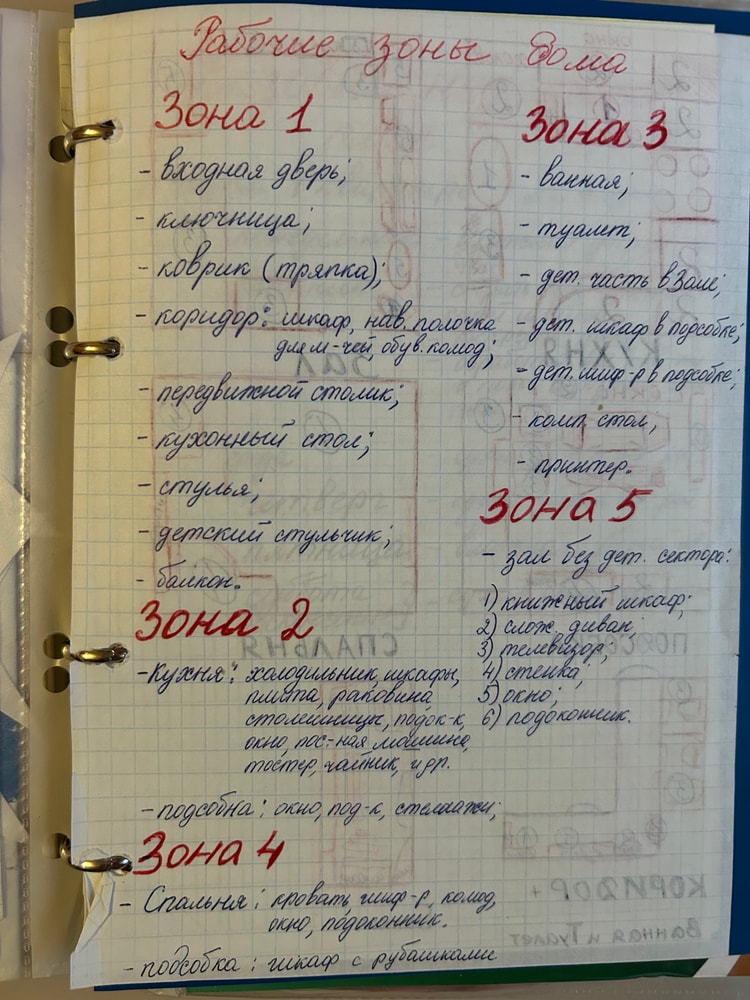 Рабочие зоны дома
Зона 1
- входная дверь;
- ключница;
- коврик (тряпка);
- коридор: шкаф, нав. полочка
для м-чей, обув. комод;
- передвижной столик;
- кухонный стол;
- стулья;
- детский стульчик;
- балкон.
Зона 2
- Кухня: холодильник, шкафы,
плита, раковина
столешницы, подок-к,
окно, пос-ная машина,
тостер, чайник, и др.
- подсобна: окно, под-к, стеллажи;
Зона 4
- Спальня: кровать, шиф-р, комод,
окно, подоконник.
- подсобка: шкаф с рубашками
Зона 3
- ванная;
- туалет;
- дет. часть в Зале;
- дет. шкаф в подсобке;
- дет. шиф-р в подсобке;
- комп. стол,
- принтер.
Зона 5
- зал без дет. сектора:
1) книжный шкаф;
2) слож. диван;
3) телевизор;
4) стенка;
5) окно;
6) подоконник.
КУХНЯ
ЗАЛ
СПАЛЬНЯ
КОРИДОР +
Ванная и Туалет